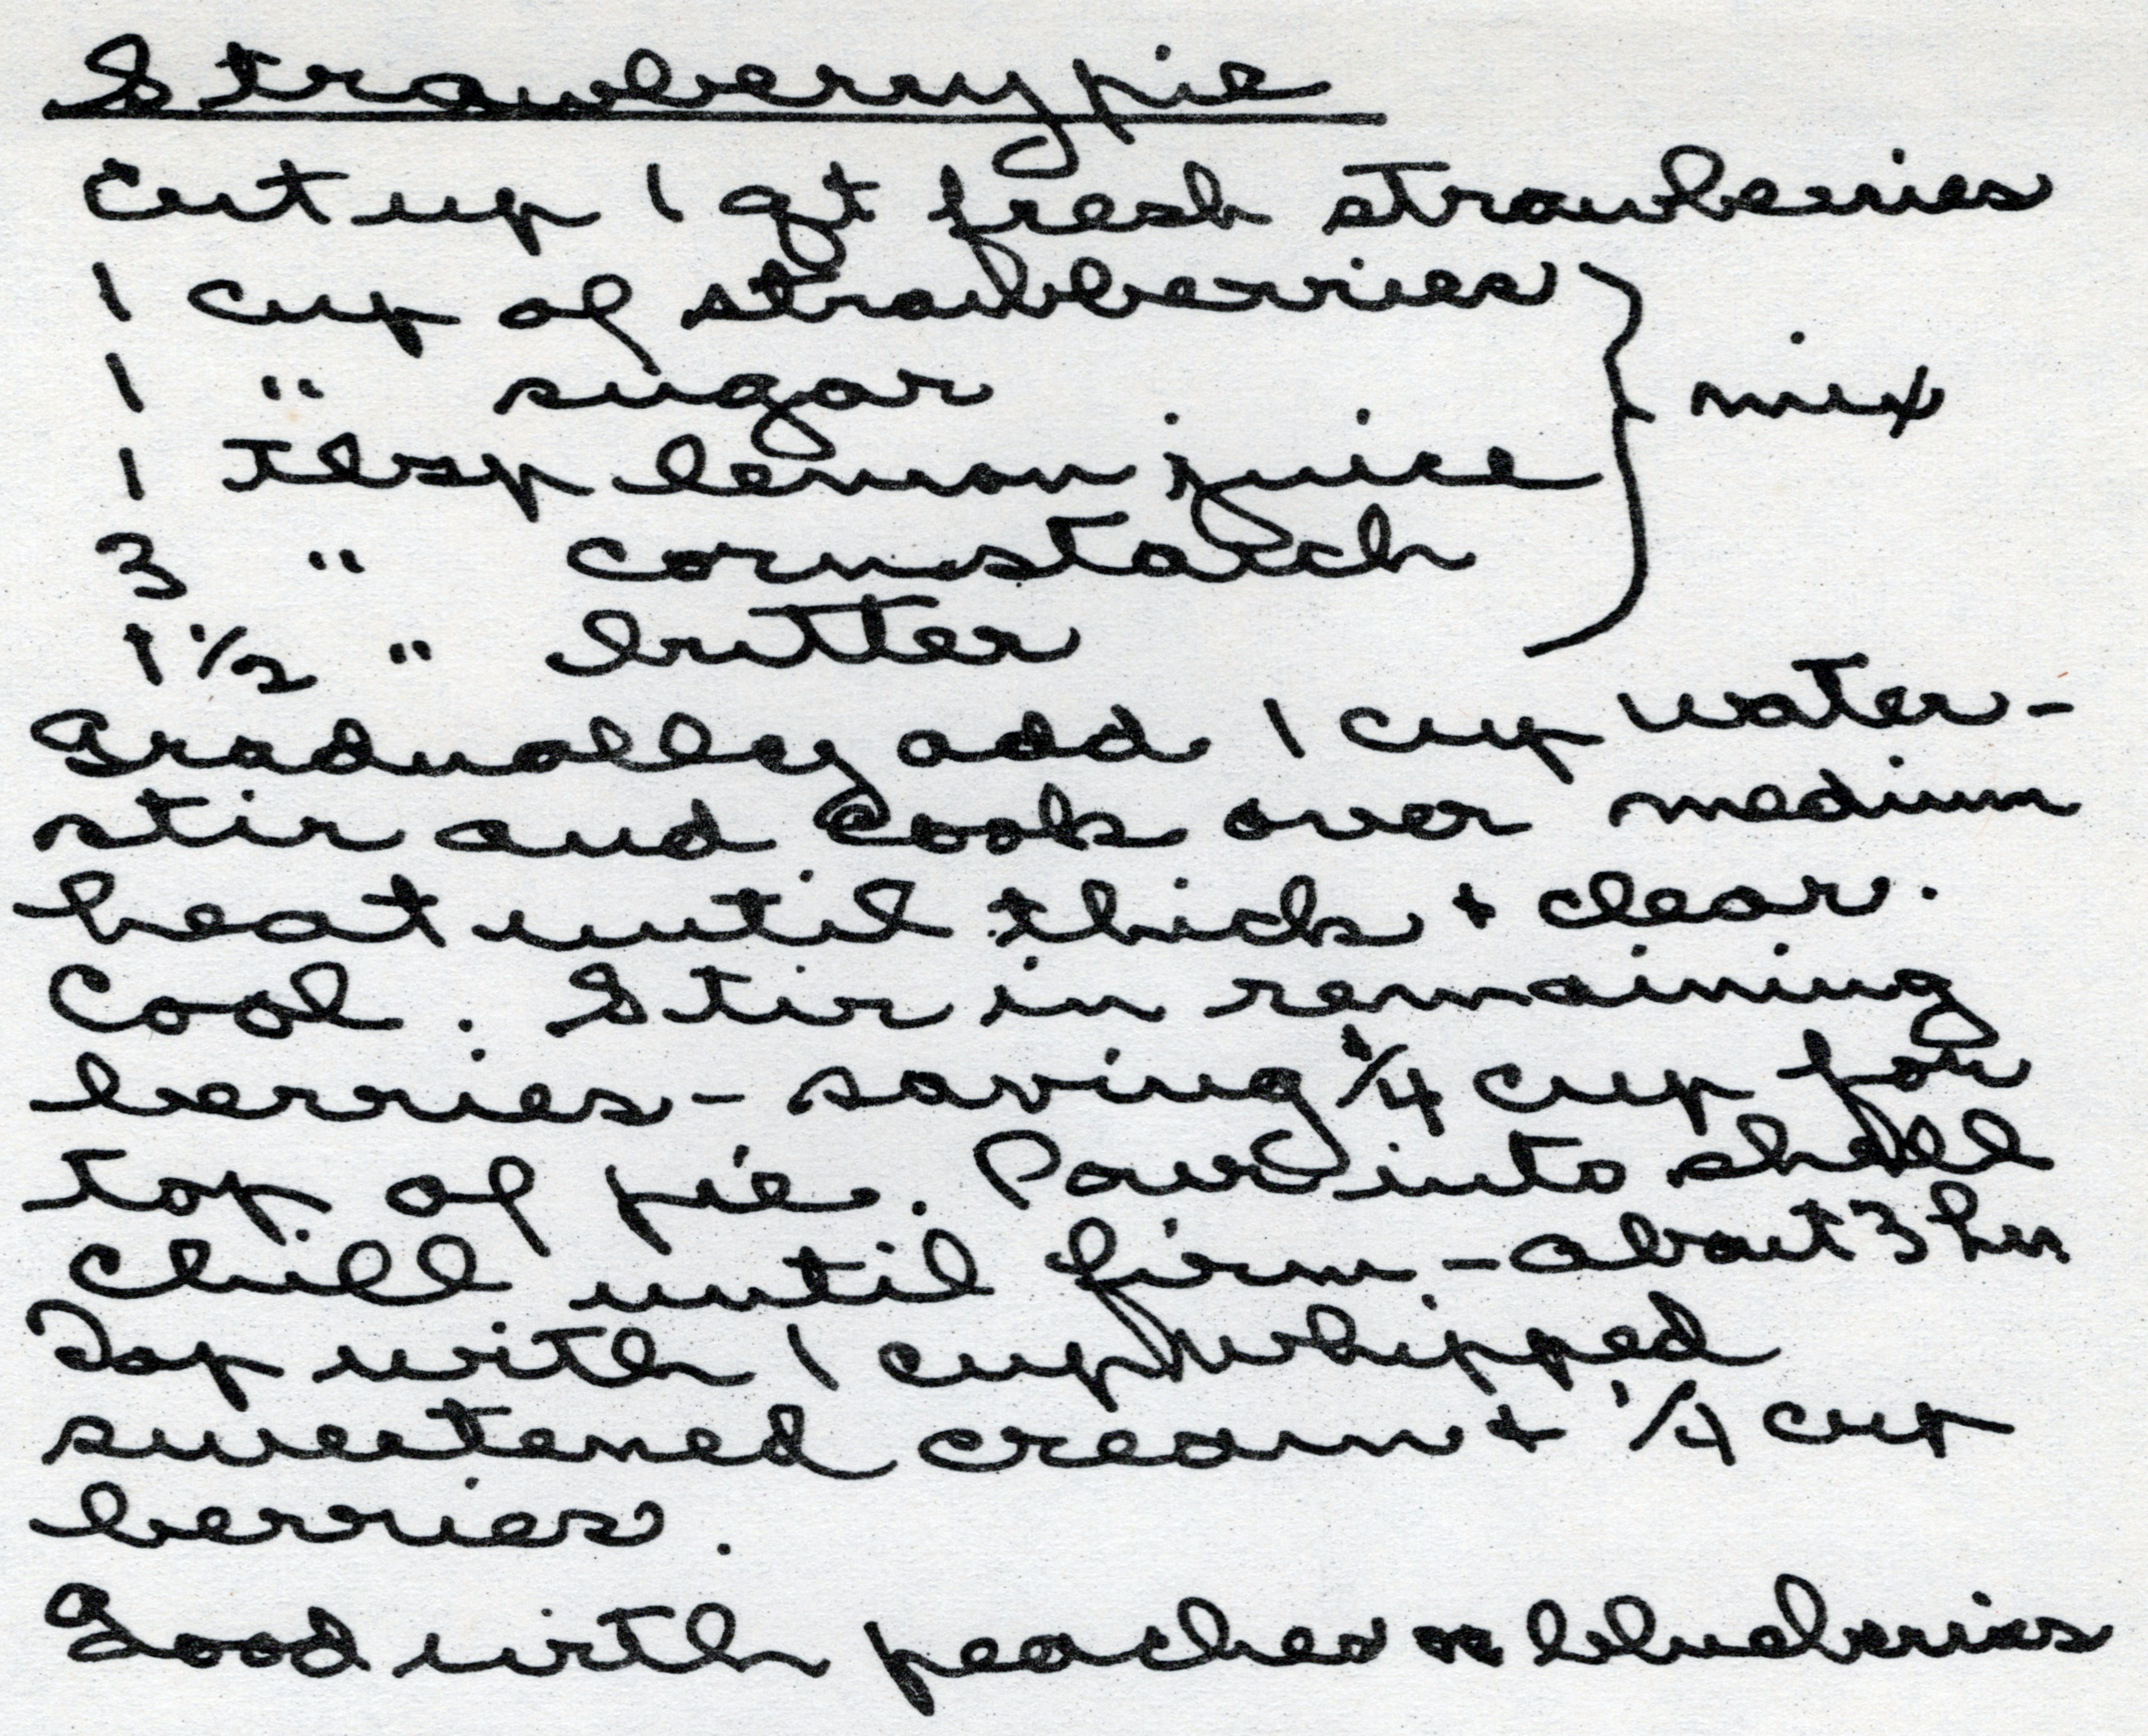 Strawberry pie
Cut up 1 qt fresh strawberries
1 cup of strawberries
1 " sugar
1 Tlbsp lemon juice
3 " cornstarch
1 1/2 " butter
} mix
Gradually add 1 cup water -
stir and cook over medium
heat until thick + clear.
Cool. Stir in remaining
berries - saving 1/4 cup for
top of pie. Pour into shell
Chill until firm - about 3 hrs
Top with 1 cup whipped
sweetened cream + 1/4 cup
berries.
Good with peaches or blueberries